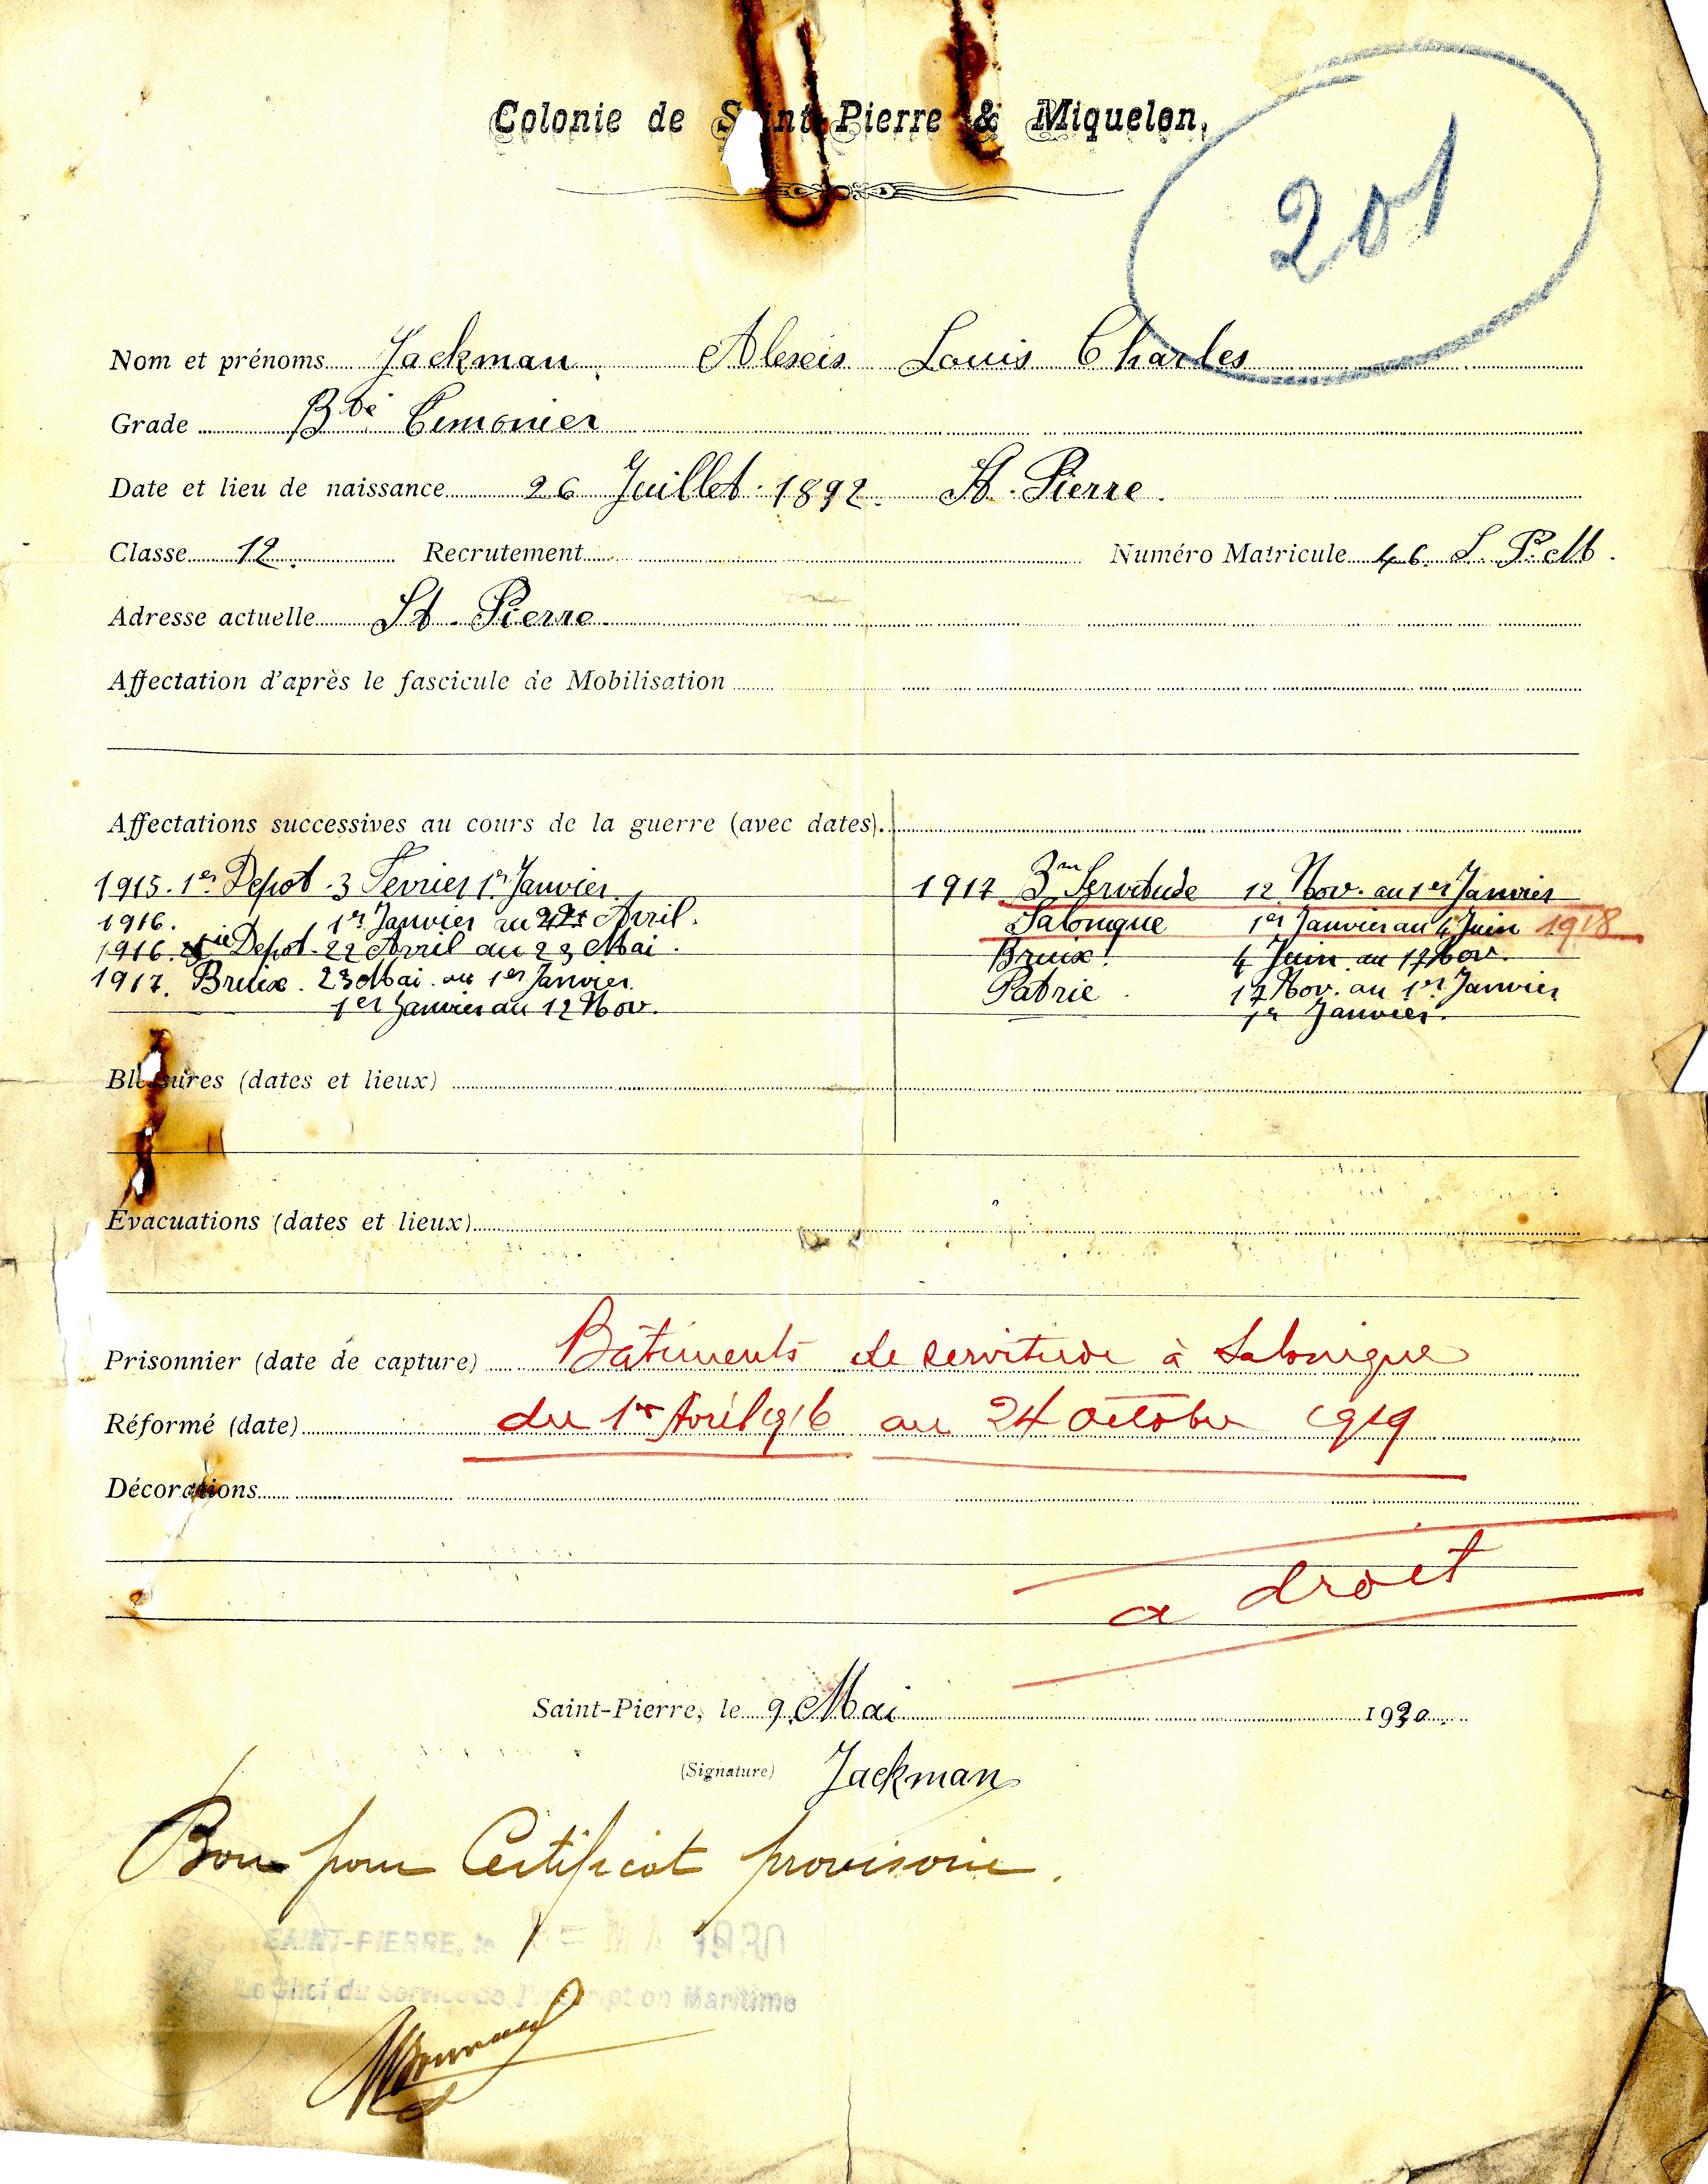 Colonie de Saint-Pierre & Miquelon,
201
Nom et prénoms Jackman Alexis Louis Charles
Grade Bté Timonier
Date et lieu de naissance 26 Juillet 1892. St. Pierre.
Classe 12. Recrutement Numéro Matricule 46. S. P. et M.
Adresse actuelle St. Pierre.
Affectation d'après le fascicule de Mobilisation
Affectations successives au cours de la guerre (avec dates).
1915. 1er Depot. 3 Fevrier 1er Janvier
1916. 1er Janvier au 22 Avril.
1916. Depot. 22 Avril au 23 Mai.
1917. Bruix. 23 Mai au 1er Janvier
1er Janvier au 12 Nov.
1917 3m Servitude 12 Nov. au 1er Janvier
Salonique 1er Janvier au 4 Juin 1918
Bruix. 4 Juin au 17 Nov.
Patrie. 17 Nov. au 1er Janvier
1er Janvier.
Blessures (dates et lieux)
Évacuations (dates et lieux)
Prisonnier (date de capture) Bâtiments de servitude à Salonique
Réformé (date) du 1er Avril 1916 au 24 octobre 1919
Décorations
a droit
Saint-Pierre, le 9 Mai 1930.
(Signature) Jackman
Bon pour Certificat provisoire.
SAINT-PIERRE, le MAI 1930
Le Chef du Service de l'Inscription Maritime